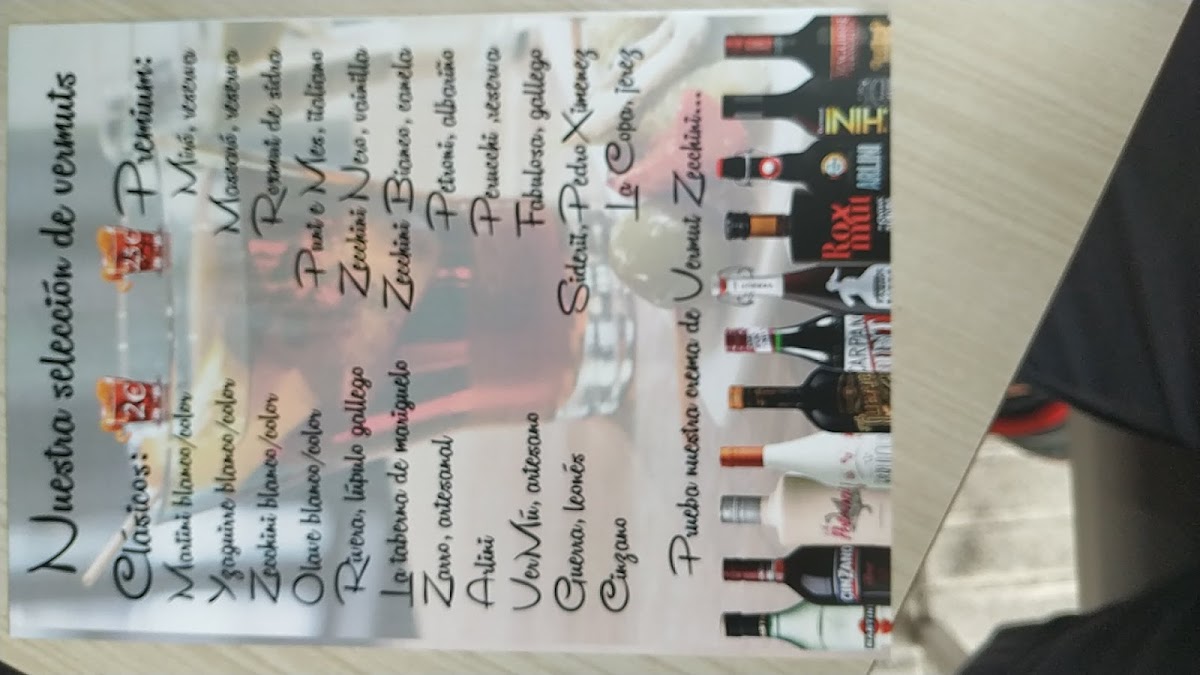 Nuestra selección de vermuts
Clásicos: 2€
Martini blanco/color
Yzaguirre blanco/color
Zecchini blanco/color
Olave blanco/color
Rivera, lúpulo gallego
La taberna de mariguelo
Zarro, artesanal
Arlini
VerMú, artesano
Guerra, leonés
Cinzano
Premium: 2.5€
Miró, reserva
Macaró, reserva
Roxmut de sidra
Punt e Mes, italiano
Zecchini Nero, vainilla
Zecchini Bianco, canela
Petroni, albariño
Perucchi, reserva
Fabulosa, gallego
Siderit, Pedro Ximenez
La Copa, jerez
Prueba nuestra crema de Vermut Zecchini...
MARTINI
CINZANO
CARPANO
Rox
mut
ARLINI